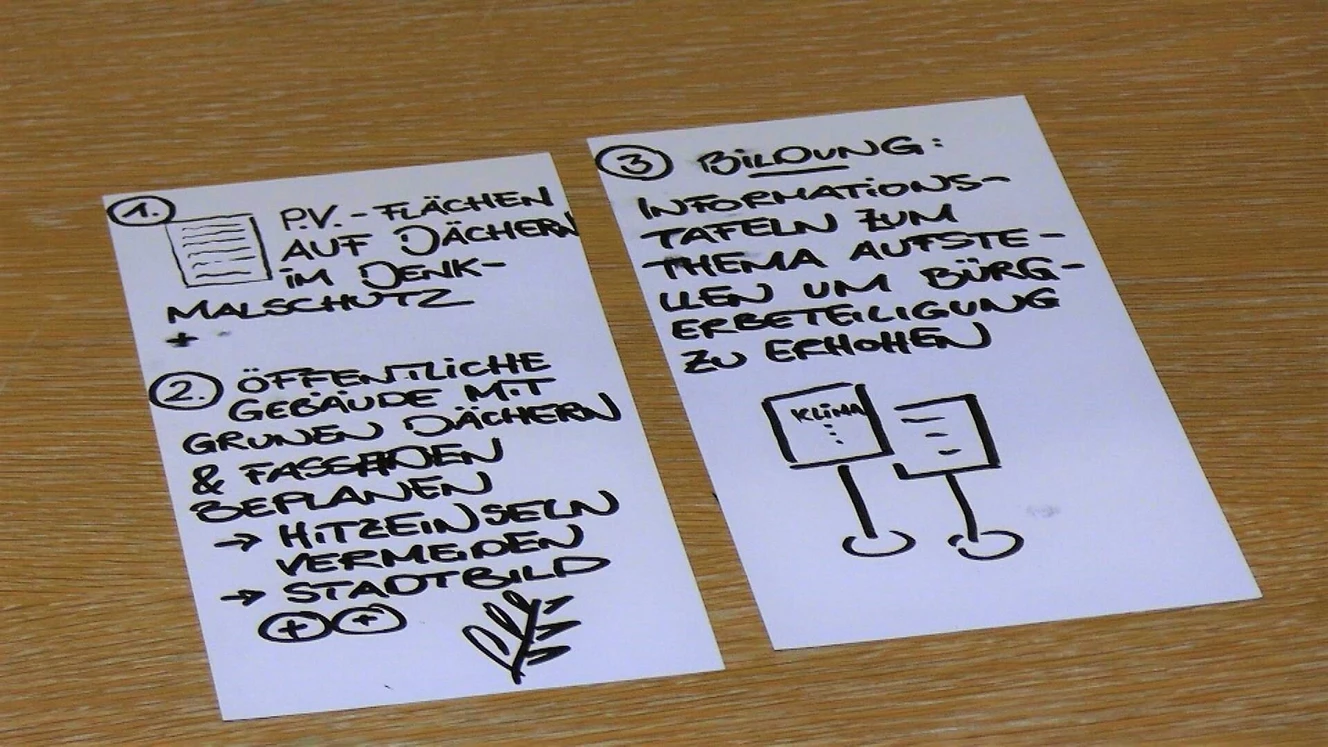 1.
P.V.-FLÄCHEN
AUF DÄCHERN
IM DENK-
MALSCHUTZ
+
2. ÖFFENTLICHE
GEBÄUDE MIT
GRÜNEN DÄCHERN
& FASSADEN
BEPLANEN
→ HITZEINSELN
VERMEIDEN
→ STADTBILD
+ +
3 BILDUNG:
INFORMATIONS-
TAFELN ZUM
THEMA AUFSTE-
LLEN UM BÜRG-
ERBETEILIGUNG
ZU ERHÖHEN
KLIMA